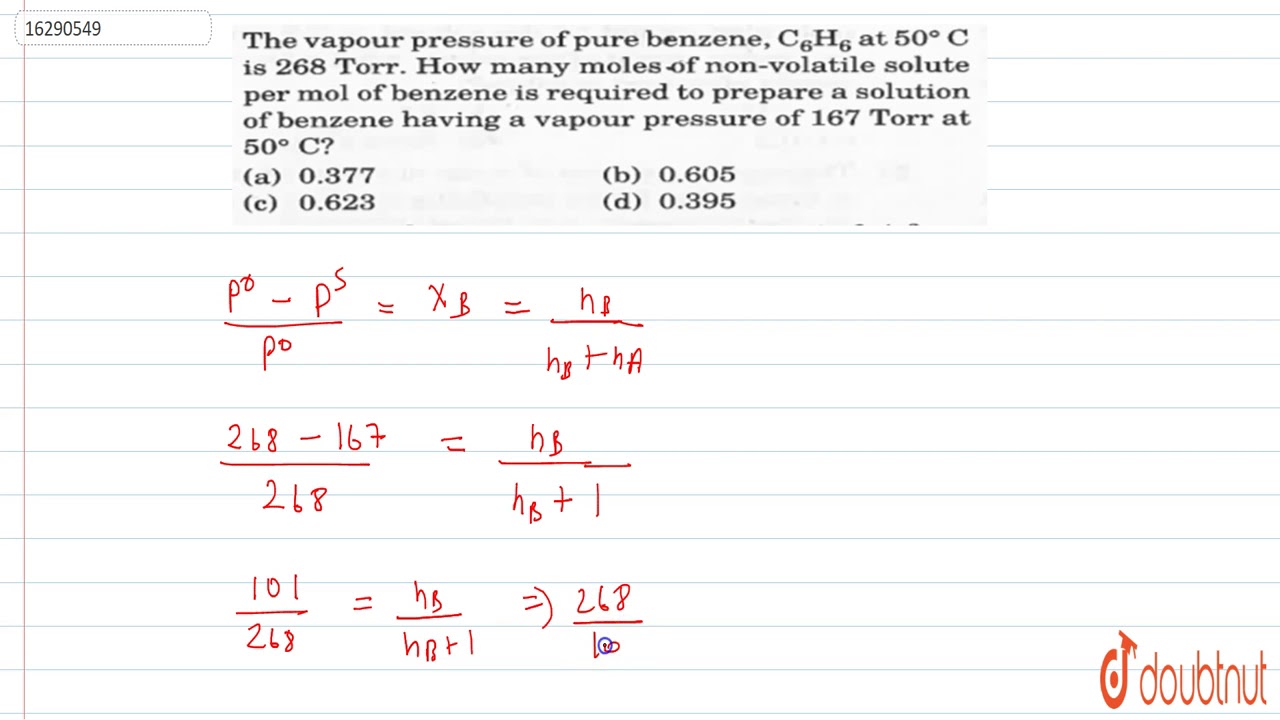 16290549
The vapour pressure of pure benzene, C₆H₆ at 50° C
is 268 Torr. How many moles of non-volatile solute
per mol of benzene is required to prepare a solution
of benzene having a vapour pressure of 167 Torr at
50° C?
(a) 0.377 (b) 0.605
(c) 0.623 (d) 0.395
(P° - P^S)/P° = X_B = n_B/(n_B + n_A)
(268 - 167)/268 = n_B/(n_B + 1)
101/268 = n_B/(n_B + 1) ⇒ 268/
doubtnut